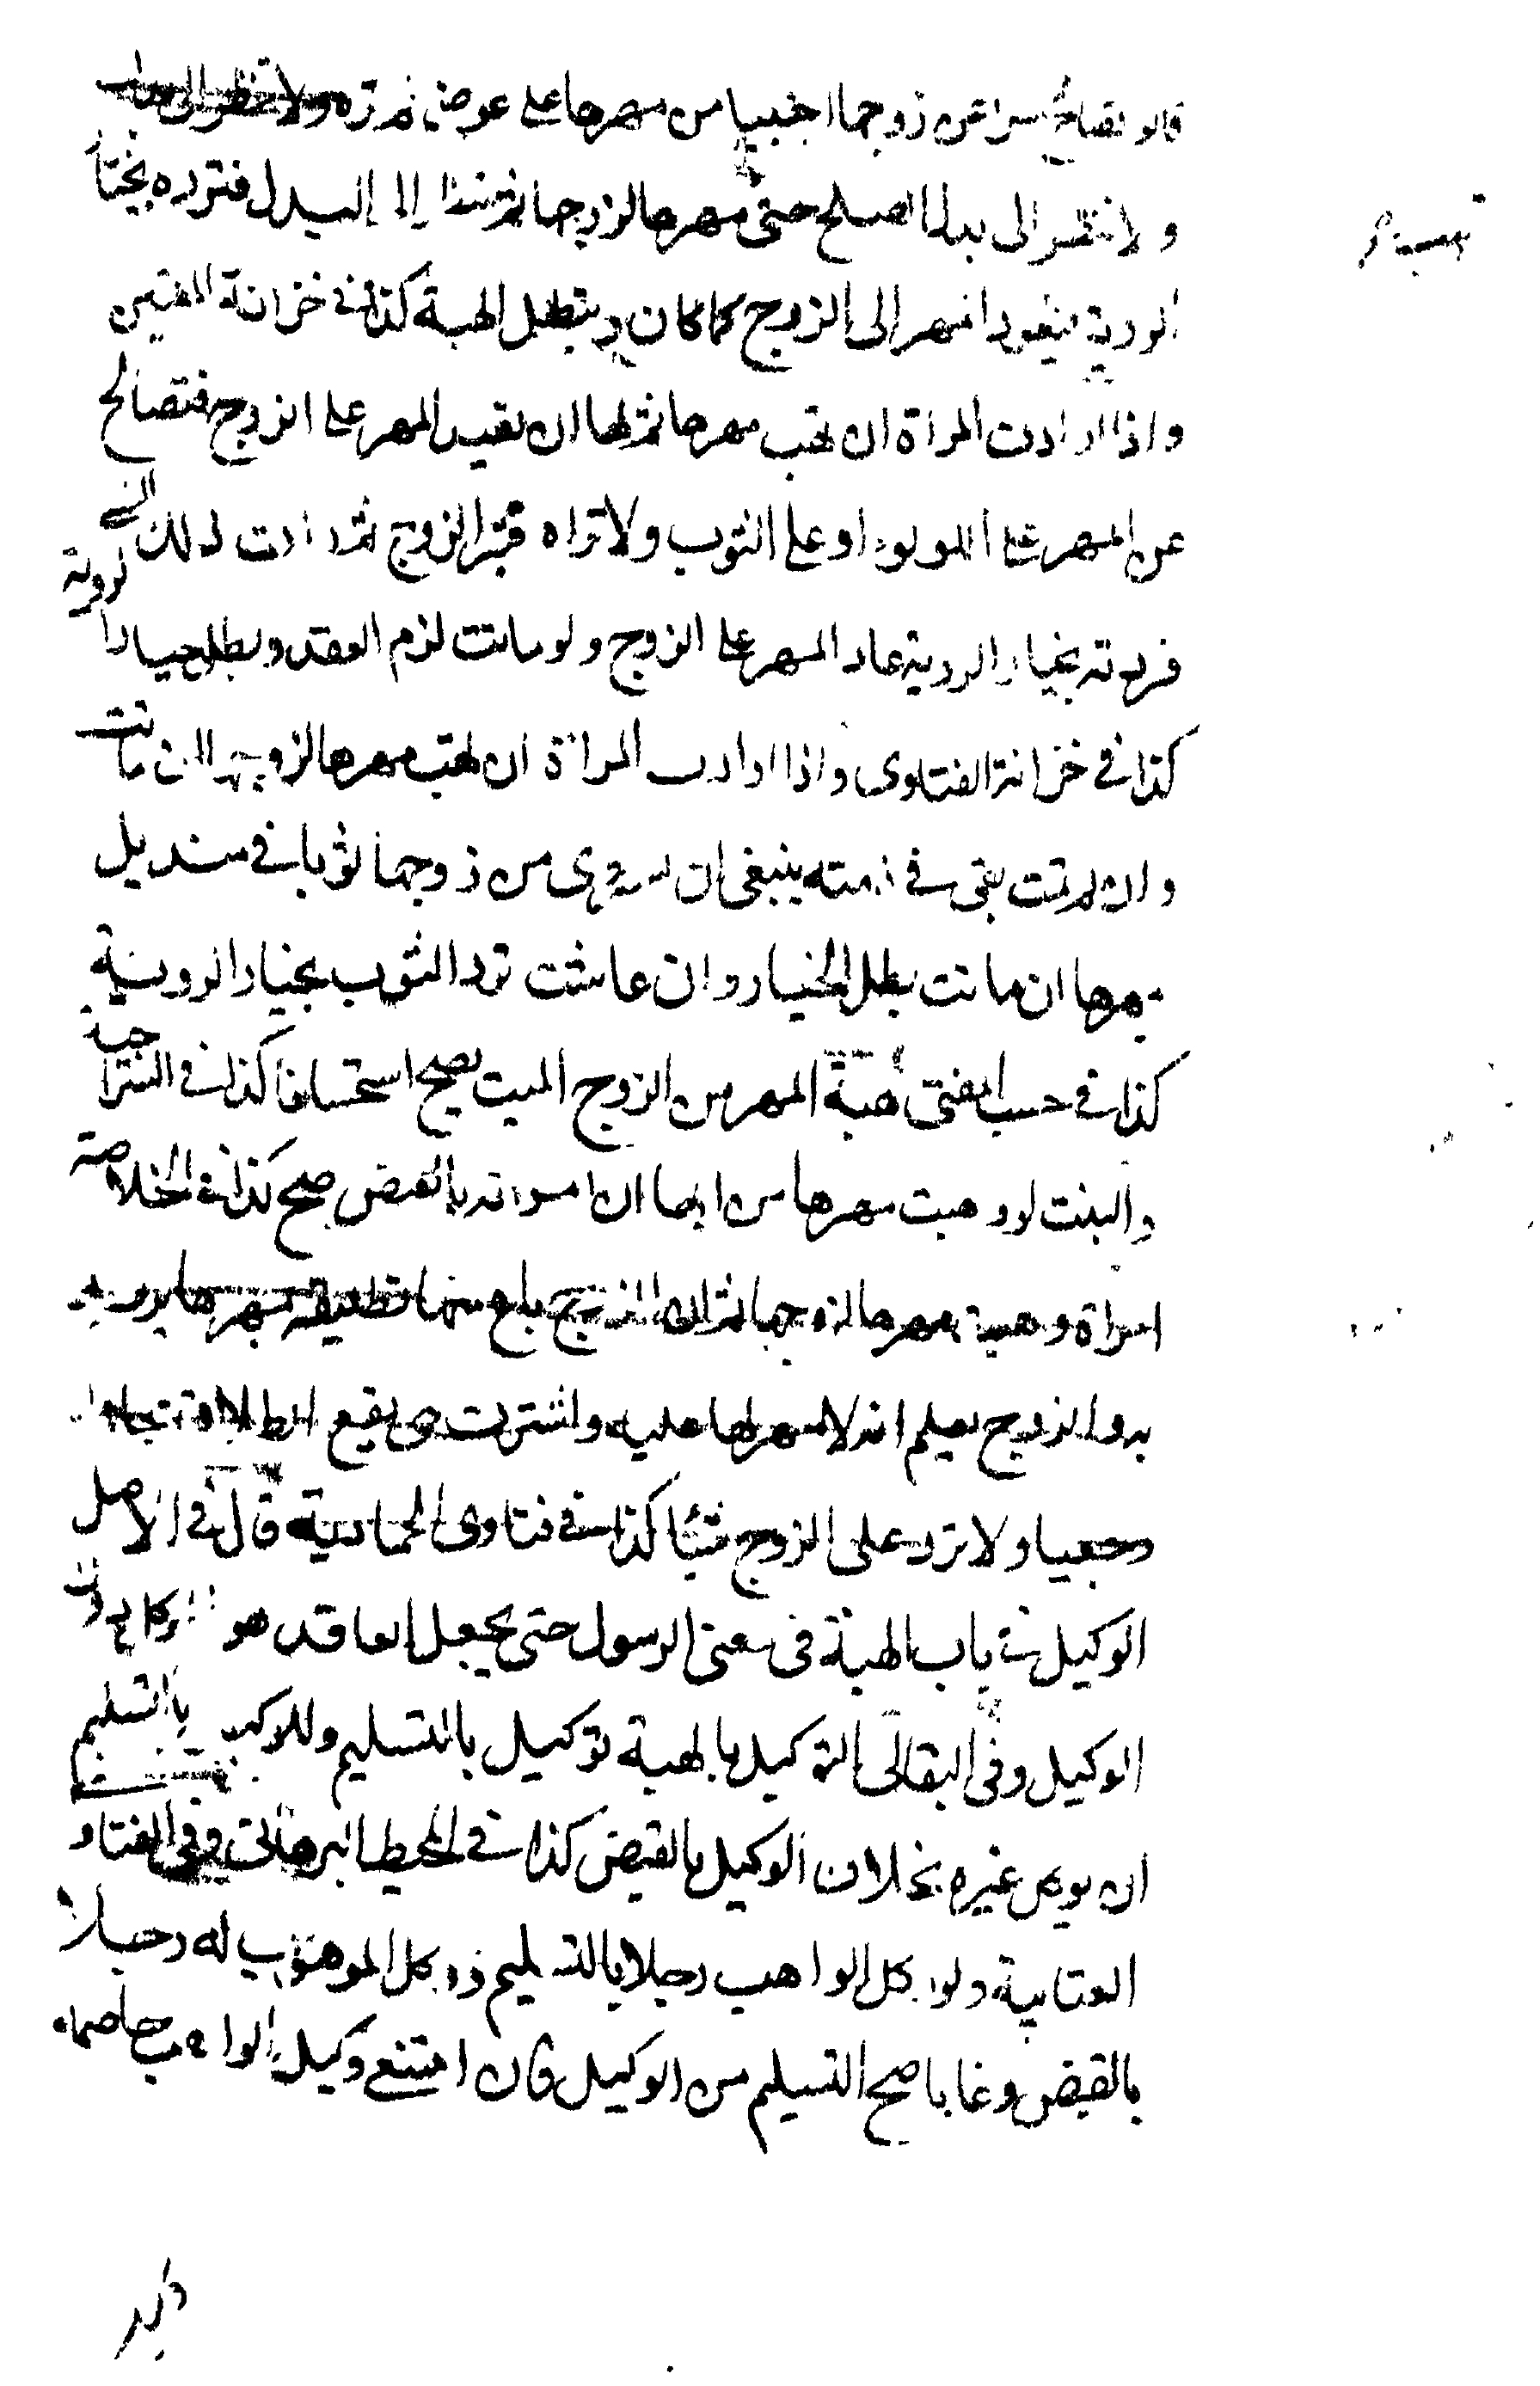 قالو تصالح سرا عن زوجها اجنبيا من مهرها على عوض لم تره ولا تنظر الى
ولا تنظر الى بدل الصلح حتى مهرها لزوجها ثم تنظر الى البدل فترده بخيار
الروية فيعود المهر الى الزوج كما كان ويبطل الهبة كذا في خزانة المفتين
واذا ارادت المراة ان تهب مهرها ثم لها ان يقيد المهر على الزوج فتصالح
عن المهر على اللولوء او على الثوب ولا تراه الزوج ثم رات ذلك الشي
فردته بخيار الروية عاد المهر على الزوج ولو ماتت لزم العقد وبطل خيار الروية
كذا في خزانة الفتاوى واذا ارادت المراة ان تهب مهرها لزوجها ان ماتت
وان لم تمت بقى في ذمته ينبغي ان تشترى من زوجها ثوبا في منديل
بمهرها ان ماتت بطل الخيار وان عاشت ترد الثوب بخيار الروية
كذا في حسب المفتى هبة المهر من الزوج الميت يصح استحسانا كذا في السراجية
والبنت لو وهبت مهرها من ابيها ان امرته بالقبض صح كذا في الخلاصة
امراة وهبت مهرها لزوجها ثم ان الزوج منها تطليقة بمهرها
به والزوج يعلم انه لا مهر لها عليه واشترت حتى يقع الطلاق
رجعيا ولا ترد على الزوج شيئا كذا في فتاوى الحمادية قال في الاصل
الوكيل في باب الهبة في معنى الرسول حتى يجعل العاقد هو الموكل دون
الوكيل وفى البقالى التوكيل بالهبة توكيل بالتسليم وللوكيل بالتسليم
ان يوكل غيره بخلاف الوكيل بالقبض كذا في المحيط البرهاني وفي الفتاو
العتابية ولو وكل الواهب رجلا بالتسليم ووكل الموهوب له رجلا
بالقبض وغابا صح التسليم من الوكيل فان امتنع وكيل الواهب خاصمه